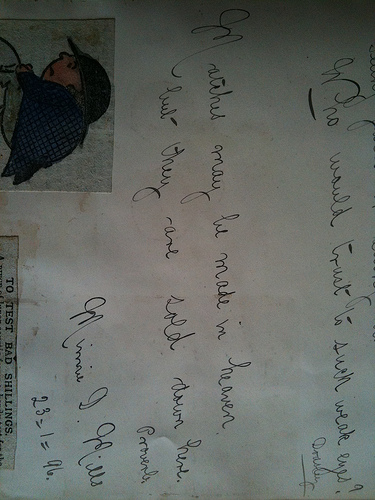 Who would trust to such weak eyes?
Matches may be made in heaven,
but they are sold down here.
Proverb
Minnie D. Mills
23=1=96.
TO TEST BAD SHILLINGS.